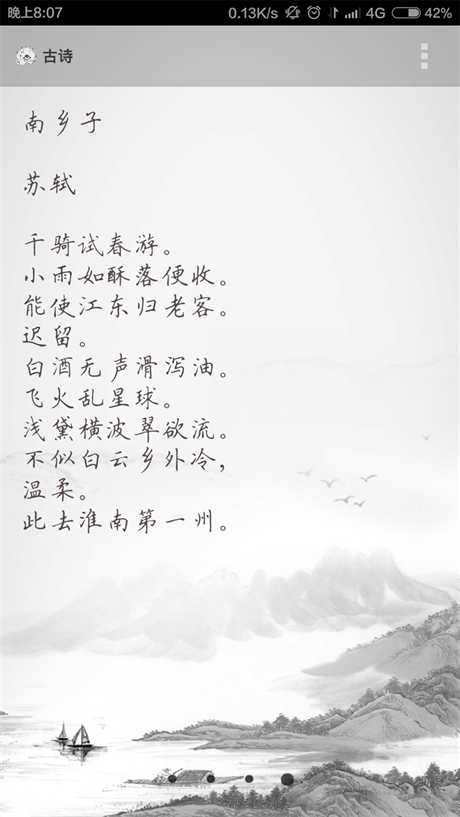 晚上8:07 0.13K/s 4G 42%
古诗
南乡子
苏轼
千骑试春游。
小雨如酥落便收。
能使江东归老客。
迟留。
白酒无声滑泻油。
飞火乱星球。
浅黛横波翠欲流。
不似白云乡外冷，
温柔。
此去淮南第一州。